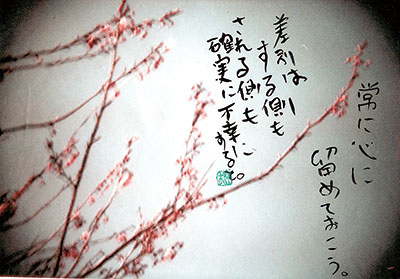 差別は
する側も
される側も
確実に不幸に
なるも。
常に心に
留めておこう。